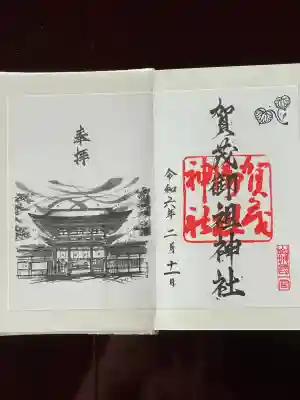 賀茂御祖神社
賀茂
神社
令和六年 二月十一日
奉拝